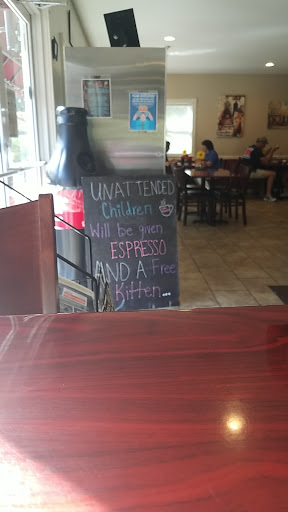 UNATTENDED
Children
Will be given
ESPRESSO
AND A Free
Kitten...